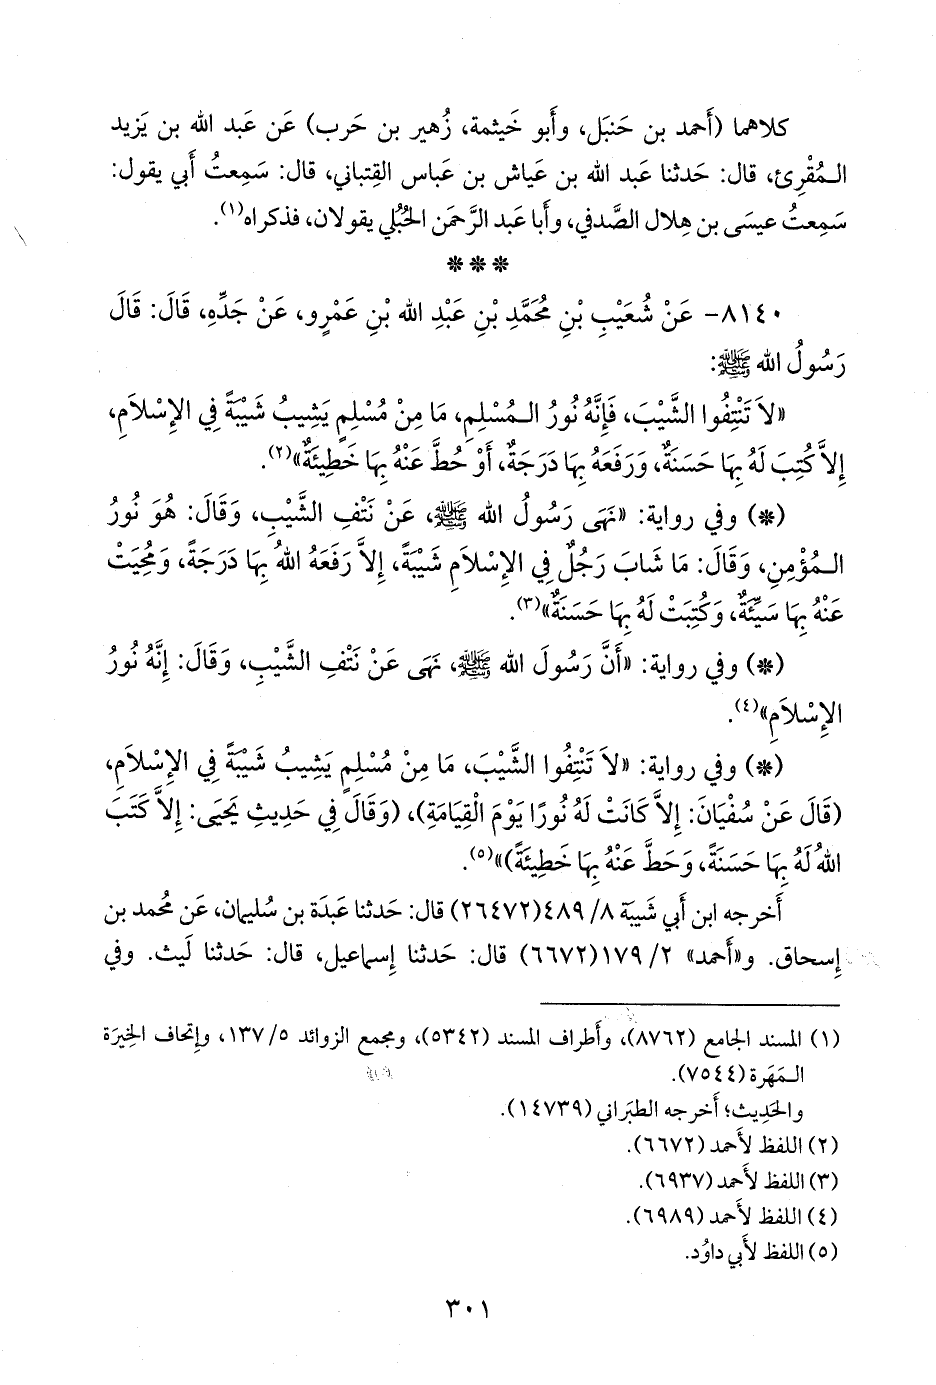 كلاهما (أَحمد بن حَنبَل، وأَبو خَيثمة، زُهير بن حَرب) عَن عَبد الله بن يَزيد
الـمُقْرِئ، قال: حَدثنا عَبد الله بن عَياش بن عَباس القِتباني، قال: سَمِعتُ أَبي يقول:
سَمِعتُ عيسَى بن هِلال الصَّدفي، وأَبا عَبد الرَّحمَن الحُبُلي يقولان، فذكراه(١).
***
٨١٤٠- عَنْ شُعَيْبِ بْنِ مُحَمَّدِ بْنِ عَبْدِ الله بْنِ عَمْرٍو، عَنْ جَدِّهِ، قَالَ: قَالَ
رَسُولُ الله ﷺ:
«لاَ تَنْتِفُوا الشَّيْبَ، فَإِنَّهُ نُورُ الـمُسْلِمِ، مَا مِنْ مُسْلِمٍ يَشِيبُ شَيْبَةً فِي الإِسْلاَمِ،
إِلاَّ كُتِبَ لَهُ بِهَا حَسَنَةٌ، وَرَفَعَهُ بِهَا دَرَجَةٌ، أَوْ حُطَّ عَنْهُ بِهَا خَطِيئَةٌ»(٢).
(*) وفي رواية: «نَهَى رَسُولُ الله ﷺ، عَنْ نَتْفِ الشَّيْبِ، وَقَالَ: هُوَ نُورُ
الـمُؤْمِنِ، وَقَالَ: مَا شَابَ رَجُلٌ فِي الإِسْلاَمِ شَيْبَةً، إِلاَّ رَفَعَهُ اللهُ بِهَا دَرَجَةً، وَمُحِيَتْ
عَنْهُ بِهَا سَيِّئَةٌ، وَكُتِبَتْ لَهُ بِهَا حَسَنَةٌ»(٣).
(*) وفي رواية: «أَنَّ رَسُولَ الله ﷺ، نَهَى عَنْ نَتْفِ الشَّيْبِ، وَقَالَ: إِنَّهُ نُورُ
الإِسْلاَمِ»(٤).
(*) وفي رواية: «لاَ تَنْتِفُوا الشَّيْبَ، مَا مِنْ مُسْلِمٍ يَشِيبُ شَيْبَةً فِي الإِسْلاَمِ،
(قَالَ عَنْ سُفْيَانَ: إِلاَّ كَانَتْ لَهُ نُورًا يَوْمَ الْقِيَامَةِ)، (وَقَالَ فِي حَدِيثِ يَحيَى: إِلاَّ كَتَبَ
اللهُ لَهُ بِهَا حَسَنَةً، وَحَطَّ عَنْهُ بِهَا خَطِيئَةً)»(٥).
أَخرجه ابن أَبي شَيبَة ٨/ ٤٨٩(٢٦٤٧٢) قال: حَدثنا عَبدَة بن سُليمان، عَن مُحمد بن
إِسحاق. و«أَحمد» ٢/ ١٧٩(٦٦٧٢) قال: حَدثنا إِسماعيل، قال: حَدثنا لَيث. وفي
(١) المسند الجامع (٨٧٦٢)، وأَطراف المسند (٥٣٤٢)، ومجمع الزوائد ٥/ ١٣٧، وإِتحاف الخِيرَة
الـمَهَرة (٧٥٤٤).
والحَدِيث؛ أَخرجه الطبَراني (١٤٧٣٩).
(٢) اللفظ لأَحمد (٦٦٧٢).
(٣) اللفظ لأَحمد (٦٩٣٧).
(٤) اللفظ لأَحمد (٦٩٨٩).
(٥) اللفظ لأَبي داوُد.
٣٠١